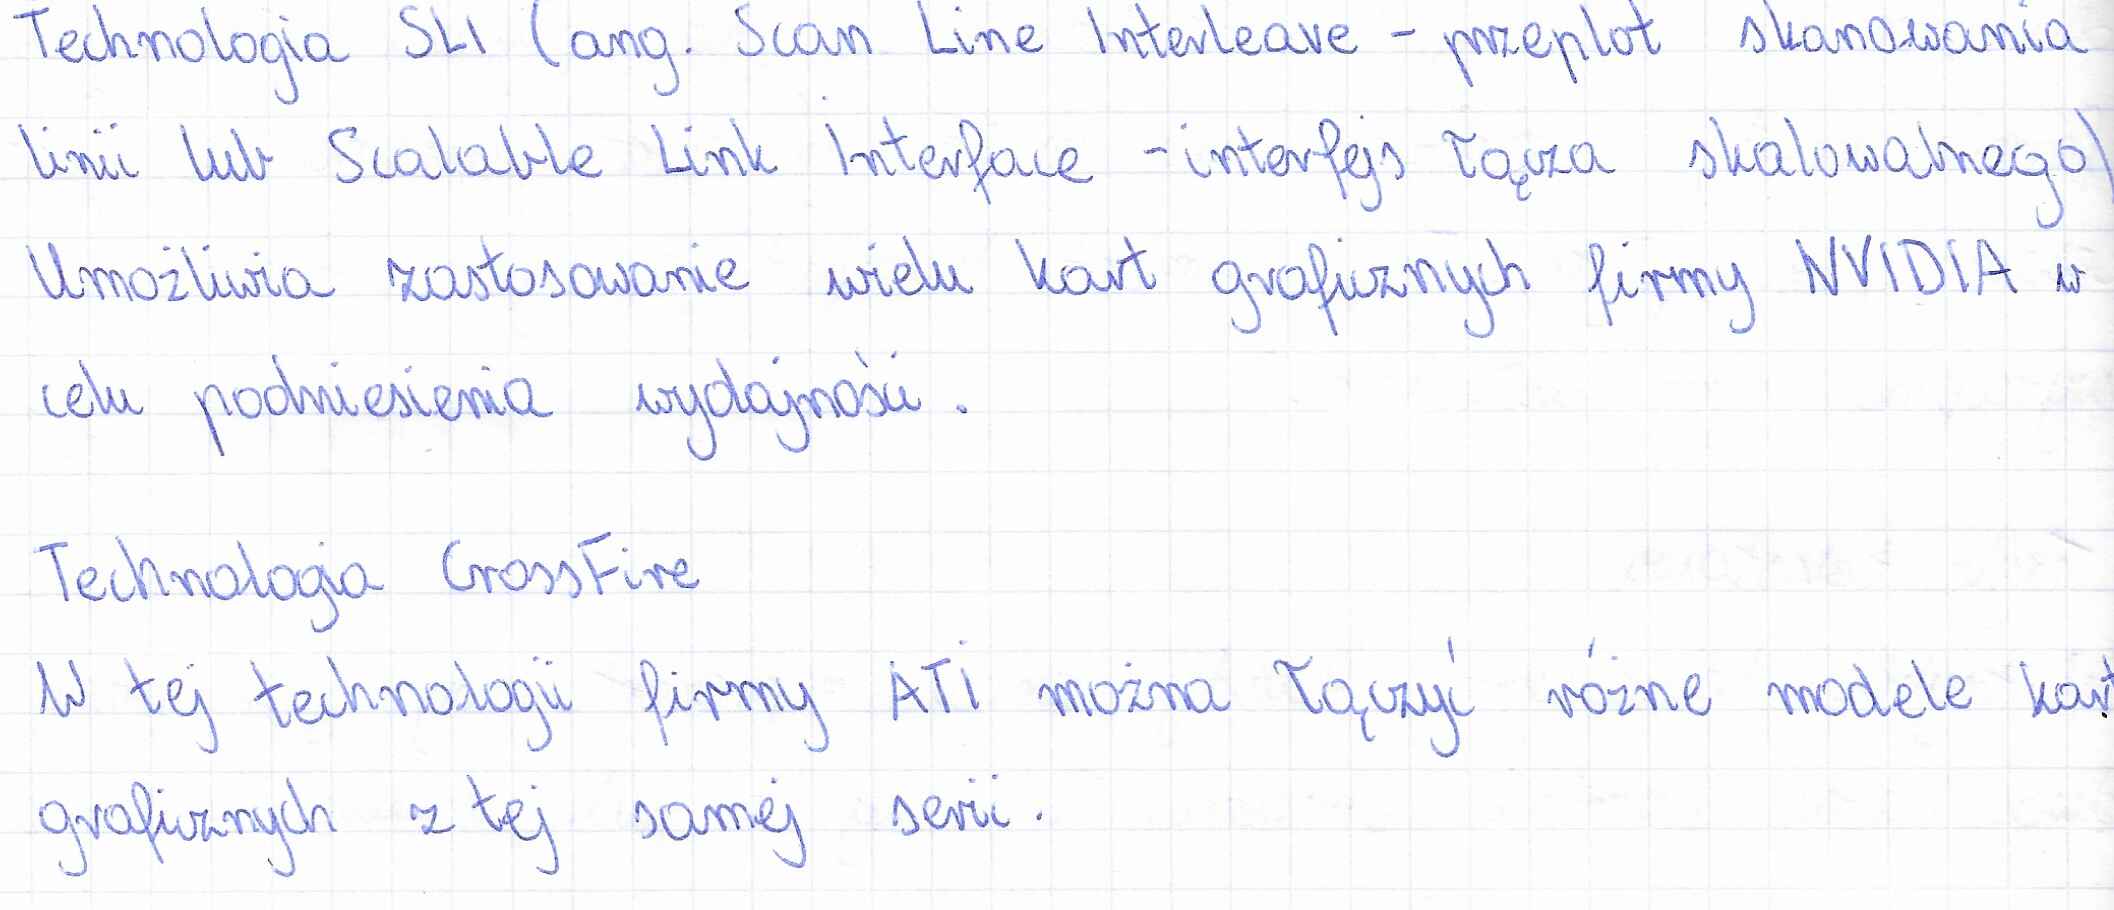 Technologia SLI (ang. Scan Line Interleave - przeplot skanowania
linii lub Scalable Link Interface - interfejs łącza skalowalnego)
Umożliwia zastosowanie wielu kart graficznych firmy NVIDIA w
celu podniesienia wydajności.
Technologia CrossFire
W tej technologii firmy ATI można łączyć różne modele kart
graficznych z tej samej serii.